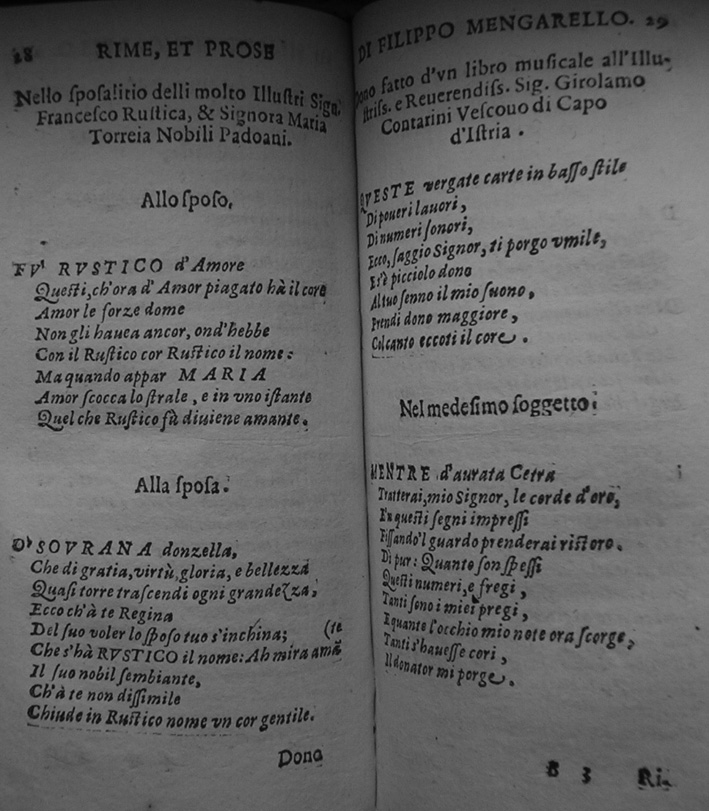 28 RIME, ET PROSE
Nello sposalitio delli molto Illustri Sign.
Francesco Rustica, & Signora Maria
Torreia Nobili Padoani.
Allo sposo.
FV' RVSTICO d'Amore
Questi, ch'ora d'Amor piagato hà il core
Amor le forze dome
Non gli hauea ancor, ond'hebbe
Con il Rustico cor Rustico il nome:
Ma quando appar MARIA
Amor scocca lo strale, e in vno istante
Quel che Rustico fù diuiene amante.
Alla sposa.
O' SOVRANA donzella,
Che di gratia, virtù, gloria, e bellezza
Quasi torre trascendi ogni grandezza,
Ecco ch'à te Regina
Del suo voler lo sposo tuo s'inchina; (te
Che s'hà RVSTICO il nome: Ah mira amã
Il suo nobil sembiante,
Ch'à te non dissimile
Chiude in Rustico nome vn cor gentile.
Dono
DI FILIPPO MENGARELLO. 29
Dono fatto d'vn libro musicale all'Illu-
striss. e Reuerendiss. Sig. Girolamo
Contarini Vescouo di Capo
d'Istria.
QVESTE vergate carte in basso stile
Di poueri lauori,
Di numeri sonori,
Ecco, saggio Signor, ti porgo vmile,
E s'è picciolo dono
Al tuo senno il mio suono,
Prendi dono maggiore,
Col canto eccoti il core.
Nel medesimo soggetto:
MENTRE d'aurata Cetra
Tratterai, mio Signor, le corde d'oro,
E'n questi segni impressi
Fissando'l guardo prenderai ristoro.
Di pur: Quanto son spessi
Questi numeri, e fregi,
Tanti sono i miei pregi,
E quante l'occhio mio note ora scorge,
Tanti s'hauesse cori,
Il donator mi porge.
B 3 Ri-